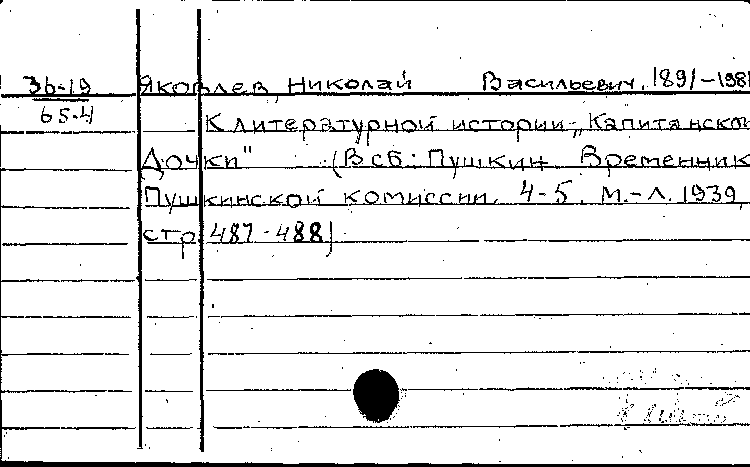 36-19 Яковлев, Николай Васильевич, 1891-1981
65-4
К литературной истории „Капитанской
Дочки" (В сб: Пушкин Временник
Пушкинской комиссии. 4-5. М.-Л. 1939,
стр. 487-488)